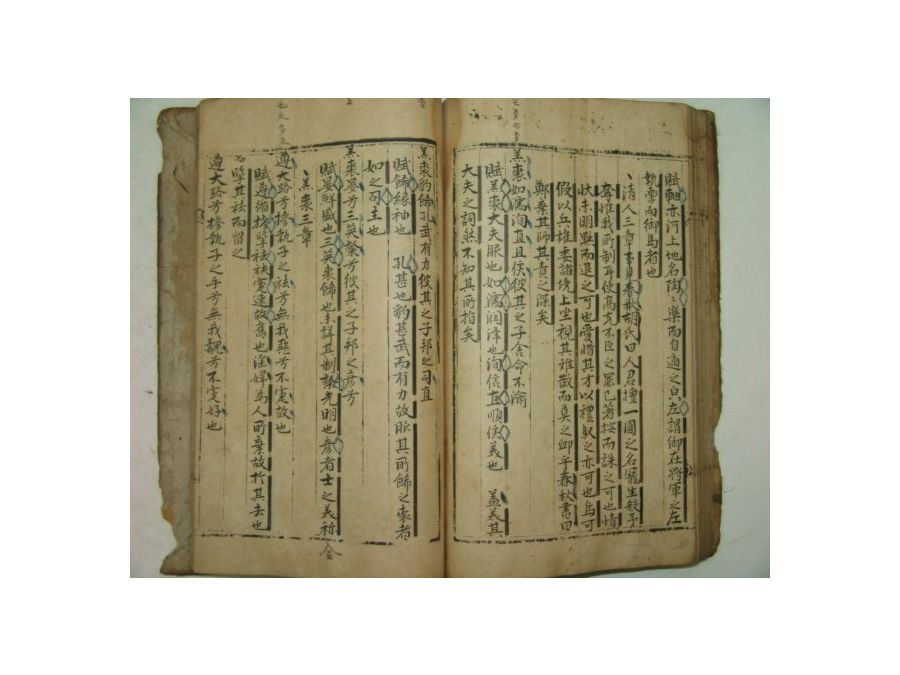 賦軸亦河上地名陶〻樂而自適之皃左謂御在將軍之左
執轡而御馬者也
清人三章事見春秋胡氏曰人君擅一國之名寵生殺予
奪惟我所制耳使高克不臣之罪已著按而誅之可也情
狀未明黜而退之可也愛惜其才以禮馭之亦可也烏可
假以兵權委諸境上坐視其離散而莫之卹乎春秋書曰
鄭棄其師其責之深矣
羔裘如濡洵直且侯彼其之子舍命不渝
賦羔裘大夫服也如濡潤澤也洵信直順侯美也 盖美其
大夫之詞然不知其所指矣
羔裘豹飾孔武有力彼其之子邦之司直
賦飾緣袖也 孔甚也豹甚武而有力故服其所飾之裘者
如之司主也
羔裘晏兮三英粲兮彼其之子邦之彦兮
賦晏鮮盛也三英裘飾也未詳其制粲光明也彦者士之美称
羔裘三章
遵大路兮摻執子之袪兮無我惡兮不寁故也
賦遵循摻擥袪袂寁速故舊也淫婦為人所棄故於其去也
擥其袪而留之
遵大路兮摻執子之手兮無我魗兮不寁好也